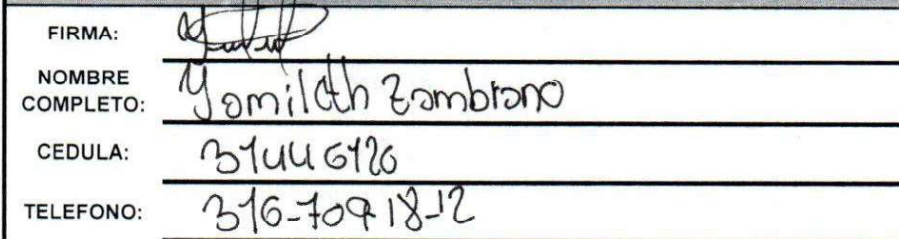 FIRMA:
NOMBRE
COMPLETO: Yamileth Zambrano
CEDULA: 31446120
TELEFONO: 316-709 18-12